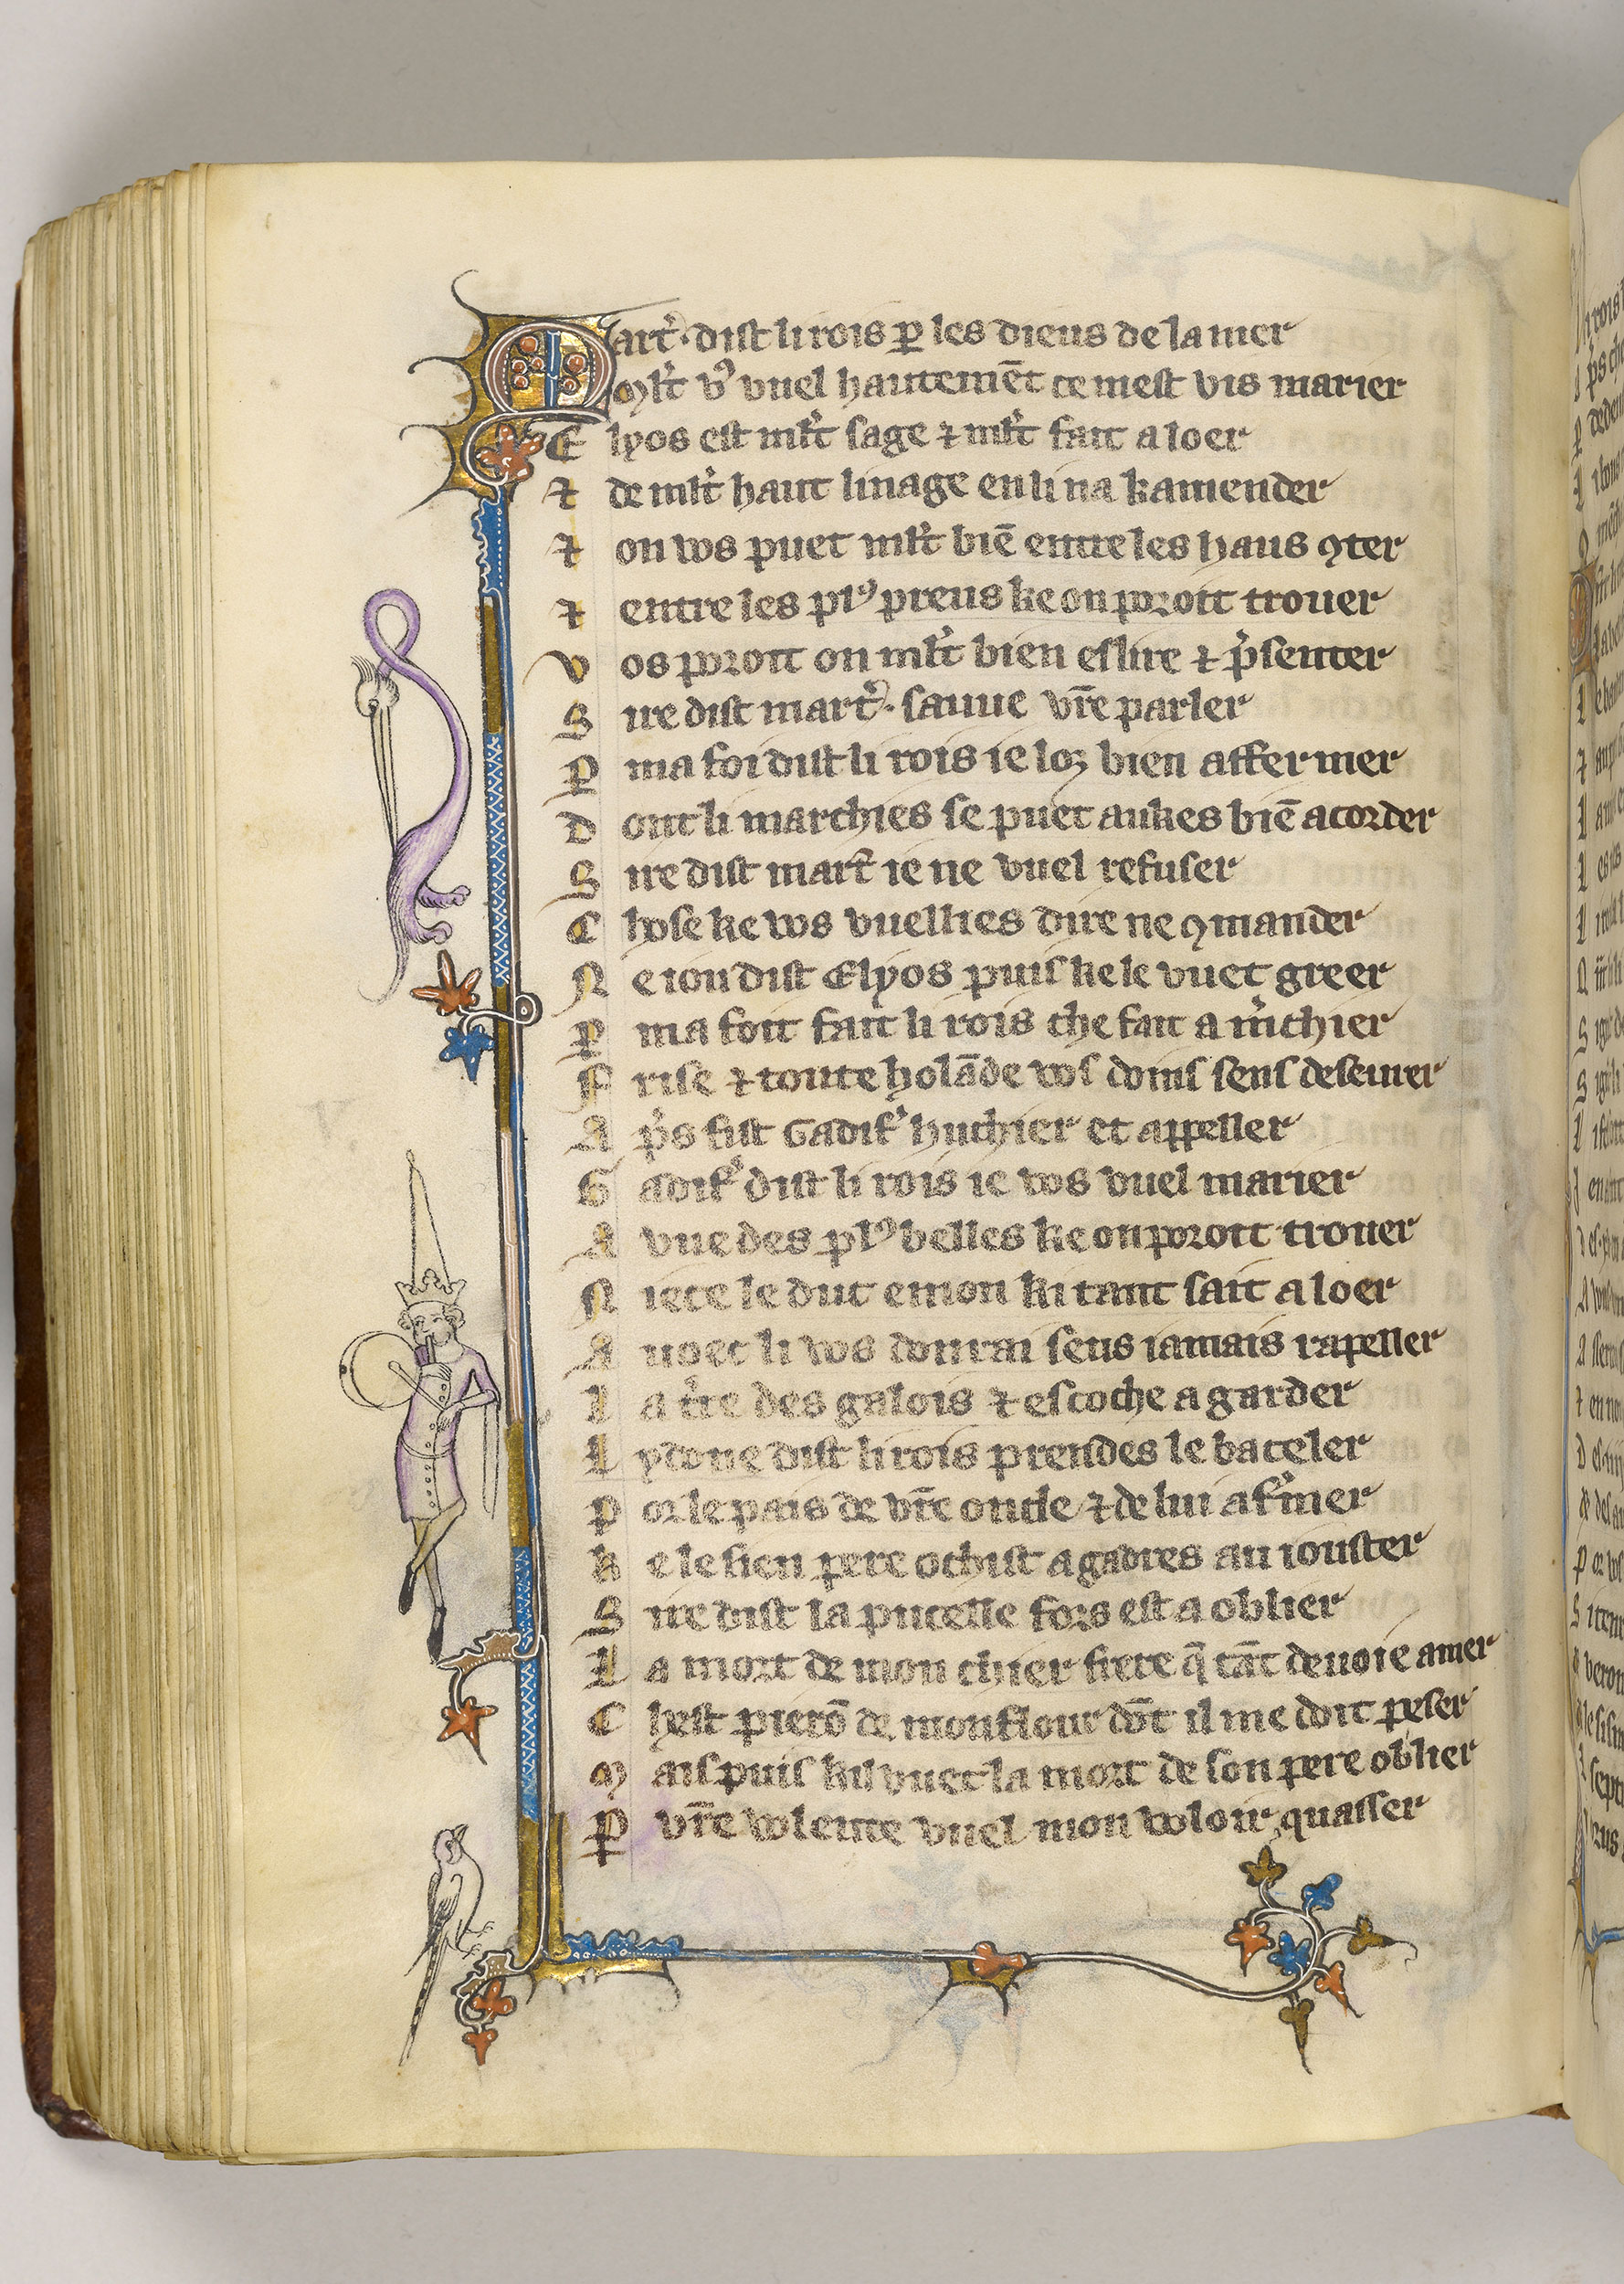 Mart̾ · dist li rois ꝑ les dieus de la mer
Ml̾t vꝰ vuel hautemēt ce mest vis marier
Elyos est ml̾t sage ⁊ ml̾t fait a loer
⁊ de ml̾t haut linage en li na kamender
⁊ on vos puet ml̾t biē entre les haus ꝯter
⁊ entre les plꝰ preus ke on poroit trouer
Vos poroit on ml̾t bien eslire ⁊ p̾senter
Sire dist mart̾ · sauue vr̄e parler
Ꝑ ma foi dist li rois ie loz bien affermer
Dont li marchies se puet aukes biē acorder
Sire dist mart̾ ie ne vuel refuser
Chose ke vos vuellies dire ne ꝯmander
Ne iou dist Elyos puis ke le vuet greer
Ꝑ ma foit fait li rois che fait a m̾chier
Frise ⁊ toute holāde vos doins sens deseurer
Ap̾s fist Gadif̾ huchier et appeller
Gadif̾ dist li rois ie vos vuel marier
A vne des plꝰ belles ke on poroit trouer
Niece le dut emon ki tant fait a loer
Auoec li vos donrai sens iamais rapeller
La t̾re des galois ⁊ escoche a garder
Lydone dist li rois prendes le bateler
Por le pais de vr̄e oncle ⁊ de lui af̾mer
Ke le sien pere ochist a gadres au iouster
Sire dist la pucelle fors est a oblier
La mort de mon chier frere q̄ tāt deuoie amer
Chest pierō de monflour dōt il me doit peser
Mais puis kil vuet la mort de son pere oblier
Ꝑ vr̄e volente vuel mon voloir quasser